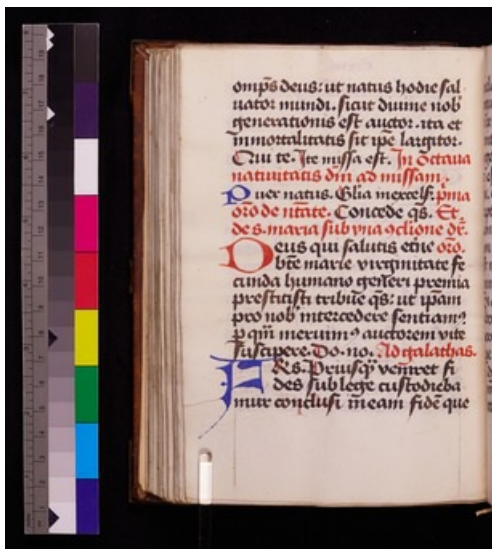 omp̄s deus: ut natus hodie sal
uator mundi. sicut diuine nob̄
generationis est auctor. ita et
immortalitatis sit ip̄e largitor.
Qui te. Ite missa est. In Octaua
natiuitatis dn̄i ad missam.
Puer natus. Gl̄ia inexcels̄. p̄ma
orō de n̄tate. Concede q̄s. Et
de s. maria sub vna ꝯclione dr̄.
Deus qui salutis etn̄e orō.
bt̄e marie virginitate fe
cunda humano generi premia
prestitisti tribue q̄s: ut ip̄am
pro nob̄ intercedere sentiamꝰ
p quā meruimꝰ auctorem vite
suscipere. Do. no. Ad galathas.
FR̄s. Priusq̄ ueniret fi
des sub lege custodieba
mur conclusi in eam fidē que